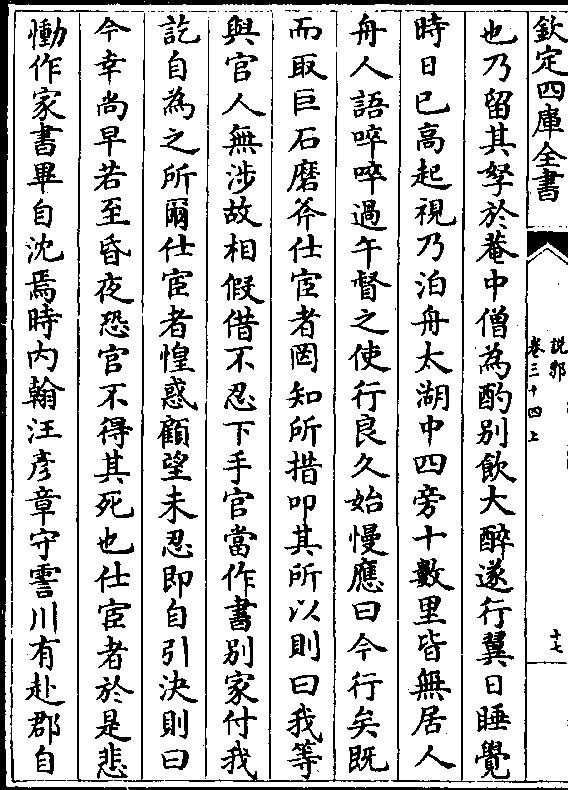 欽定四庫全書
說郛
卷三十四上
十七
也乃留其孥於菴中僧為酌別飲大醉遂行翼日睡覺
時日已高起視乃泊舟太湖中四旁十數里皆無居人
舟人語啐啐過午督之使行良久始慢應曰今行矣既
而取巨石磨斧仕宦者罔知所措叩其所以則曰我等
與官人無涉故相假借不忍下手官當作書別家付我
訖自為之所爾仕宦者惶惑顧望未忍即自引決則曰
今幸尚早若至昏夜恐官不得其死也仕宦者於是悲
慟作家書畢自沈焉時内翰汪彥章守霅川有赴郡自